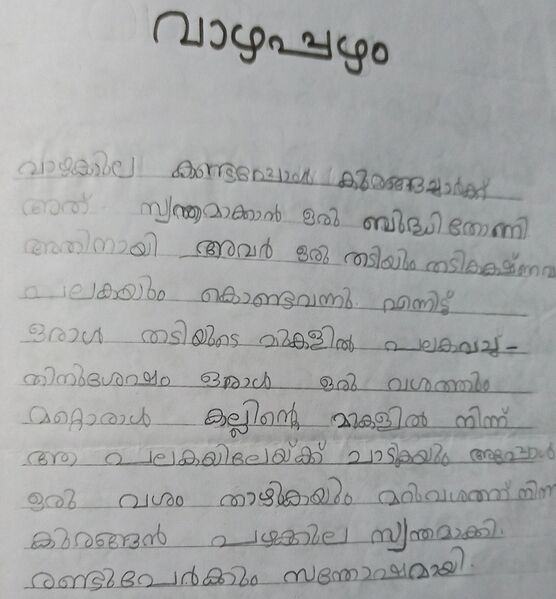 വാഴപ്പഴം
വാഴക്കില കണ്ടപ്പോൾ കുരങ്ങച്ചാർക്ക്
അത് സ്വന്തമാക്കാൻ ഒരു ബുദ്ധി തോന്നി
അതിനായി അവർ ഒരു തടിയും
പലകയും കൊണ്ടുവന്നു എന്നിട്ട്
ഒരാൾ തടിയുടെ മുകളിൽ പലകവച്ച്-
തിനുശേഷം ഒരാൾ ഒരു വശത്തും
മറ്റൊരാൾ കല്ലിന്റെ മുകളിൽ നിന്ന്
ആ പലകയിലേയ്ക്ക് ചാടുകയും അപ്പോൾ
ഒരു വശം താഴുകയും മറുവശത്ത് നിന്ന
കുരങ്ങൻ പഴക്കില സ്വന്തമാക്കി.
രണ്ടുപേർക്കും സന്തോഷമായി.